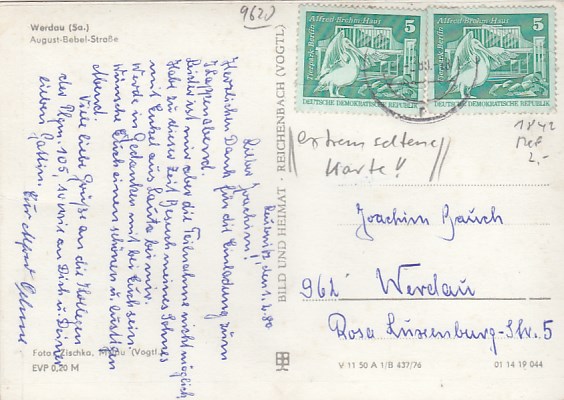 Werdau (Sa.)
August-Bebel-Straße
9620
Reumnitz, den 1.4.80
Lieber Joachim!
Herzlichen Dank für die Einladung zum
Klappenabend.
Leider ist mir aber die Teilnahme nicht möglich,
Habe zu dieser Zeit Besuch meines Sohnes
mit Enkel aus Lauta bei mir.
Werde in Gedanken mit bei Euch sein.
Wünsche Euch einen schönen u. lustigen
Abend.
Viele liebe Grüße an die Kollegen
des Plzm. 105, sowie an Dich u. Deiner
lieben Gattin.
Euer Alfred
Foto: Zischka, Mylau (Vogtl.)
EVP 0,20 M
BILD UND HEIMAT · REICHENBACH (VOGTL)
Alfred Brehm Haus 5
Tierpark Berlin
DEUTSCHE DEMOKRATISCHE REPUBLIK
Alfred Brehm Haus 5
Tierpark Berlin
DEUTSCHE DEMOKRATISCHE REPUBLIK
1842
MeF
2,-
extrem seltene
Karte!!
Joachim Bauch
962 Werdau
Rosa Luxemburg-Str. 5
V 11 50 A 1/B 437/76
01 14 19 044